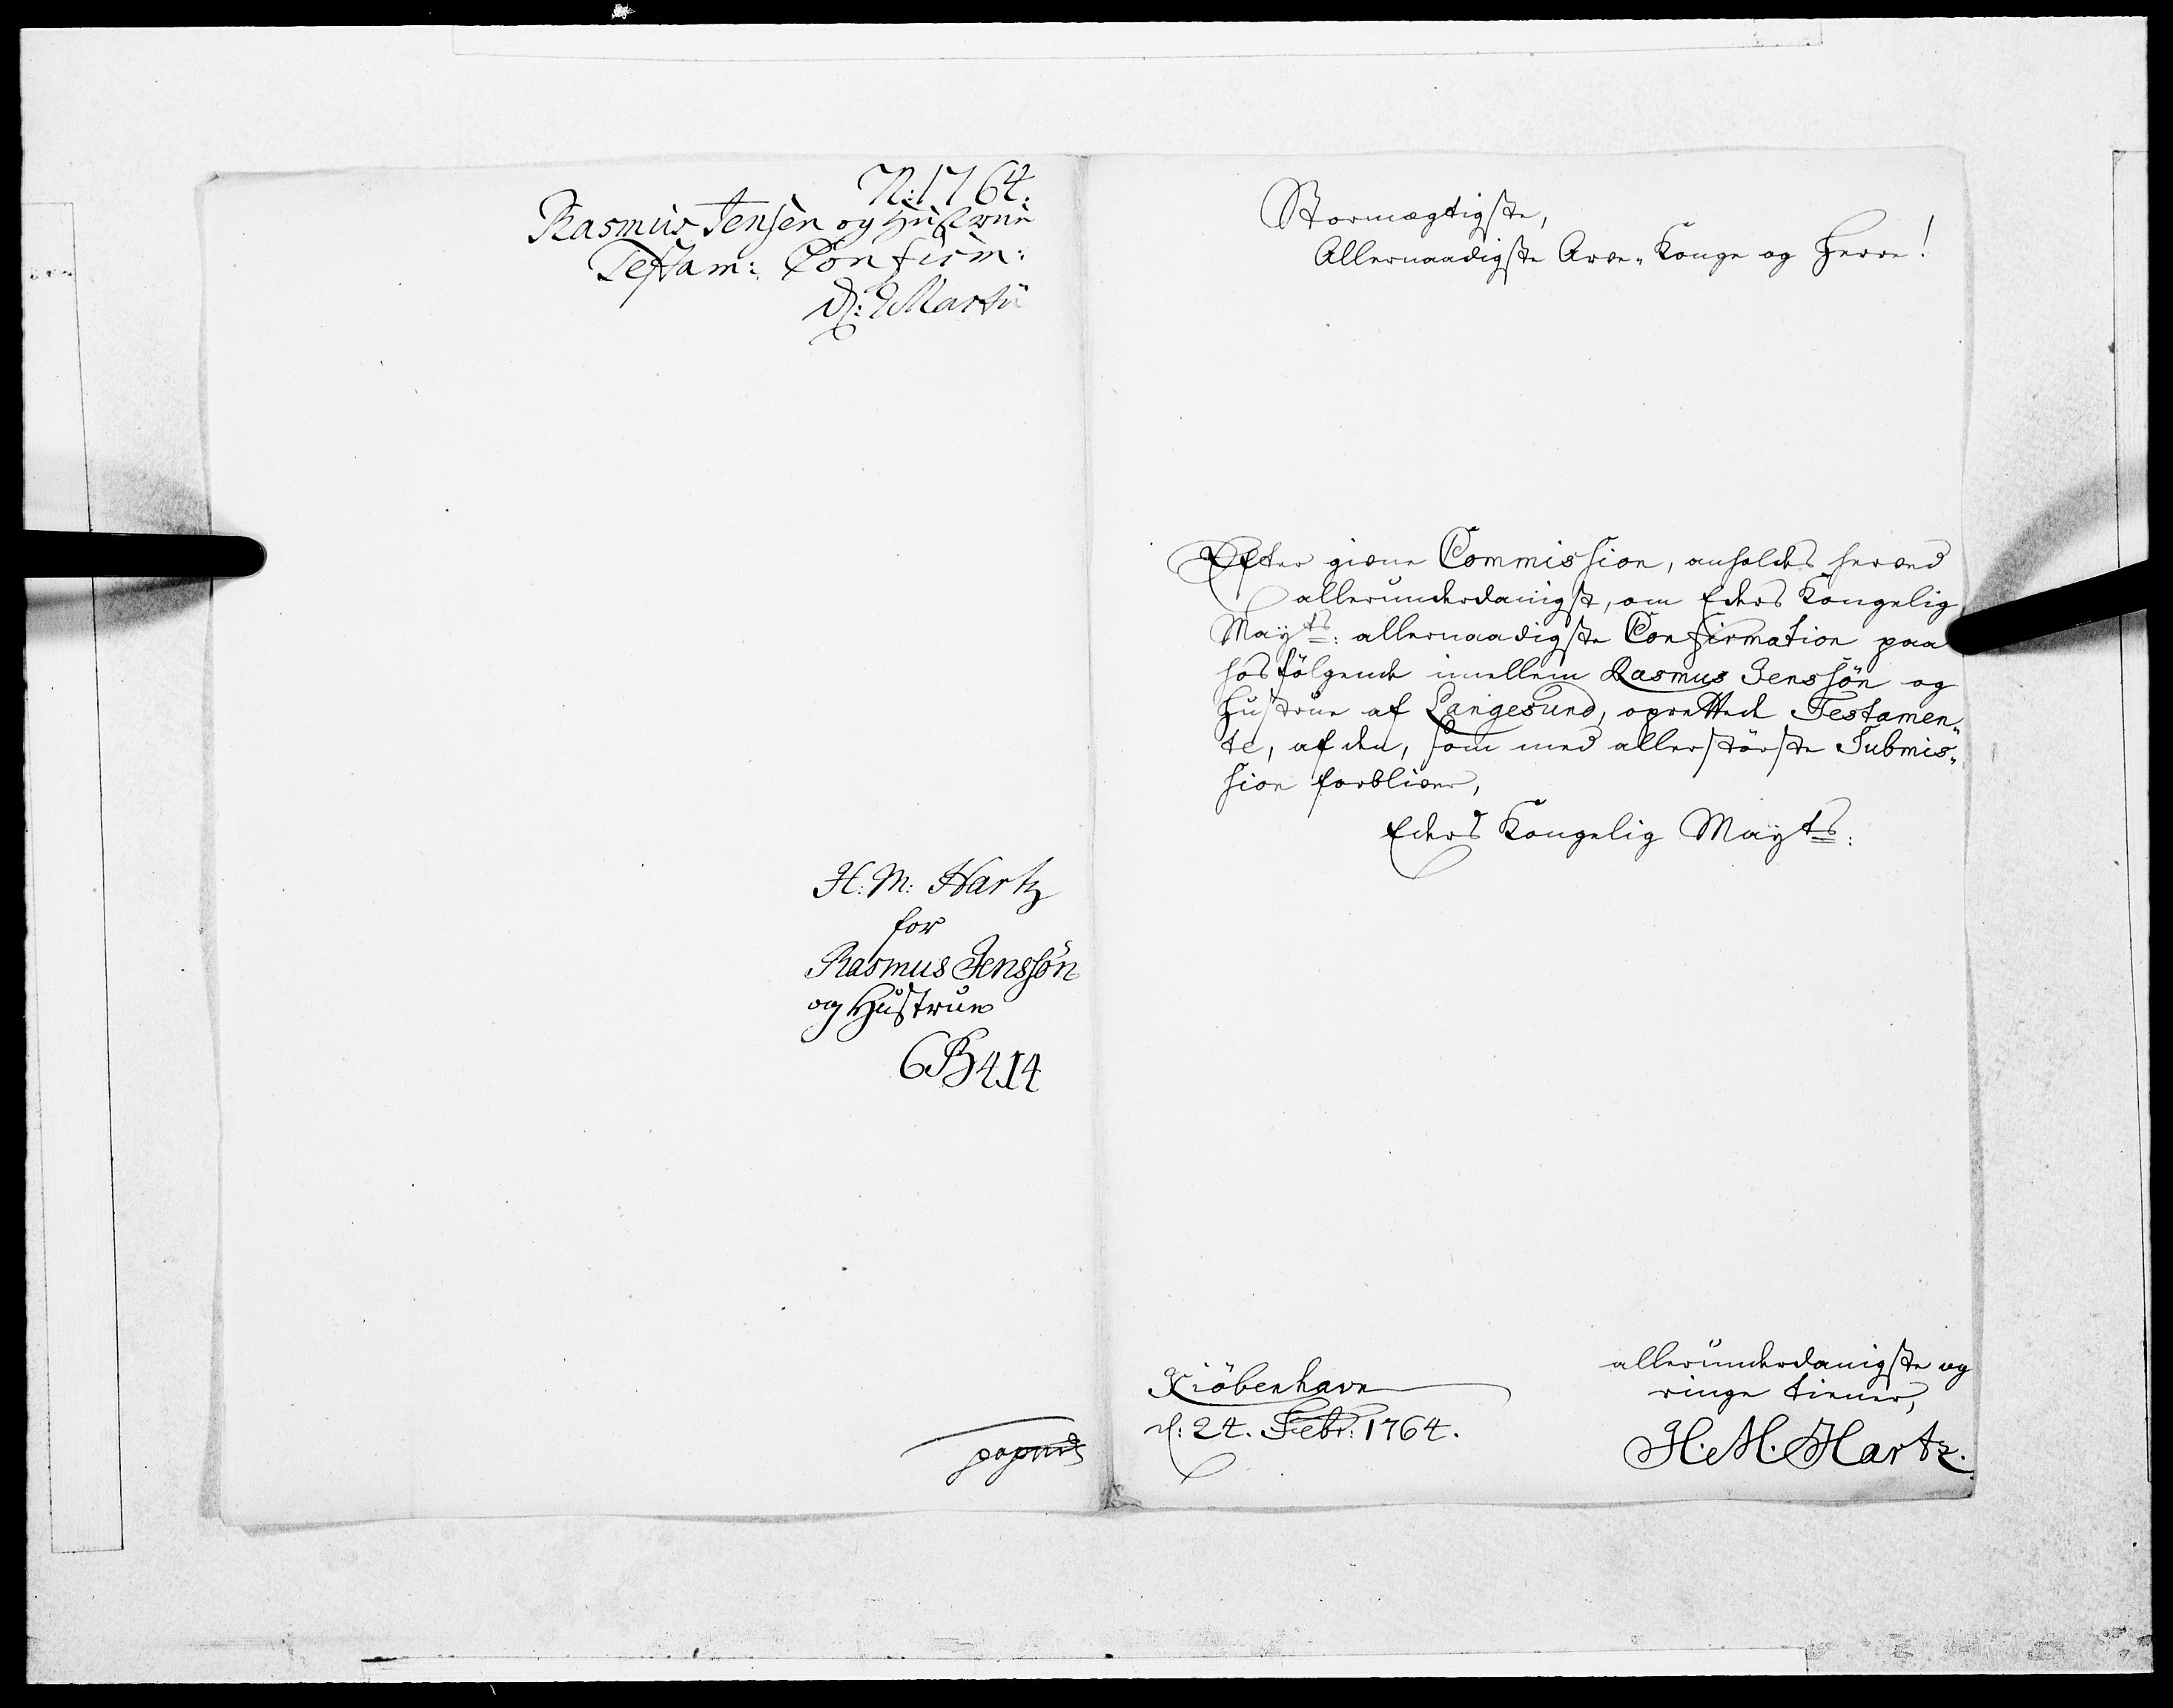 N: 1764.
Rasmus Jensen og Hustrue
Testam: Confirm:
d: 2 Martii
H: M: Hartz
for
Rasmus Jenssön
og Hustrue
6 B 414
Stormægtigste,
Allernaadigste Arve„ Konge og Herre!
Efter givne Commission, anholdes herved
allerunderdanigst, om Eders Kongelig
Mayts: allernaadigste Confirmation paa
hosfölgende imellem Rasmus Jenssön og
Hustrue af Langesund, oprettede Testamen„
te, af den, som med allerstörste Submis„
sion forbliver,
Eders Kongelig Mayts:
Kiöbenhavn
d: 24. Febr: 1764.
allerunderdanigste og
ringe tiener,
H. M. Hartz.